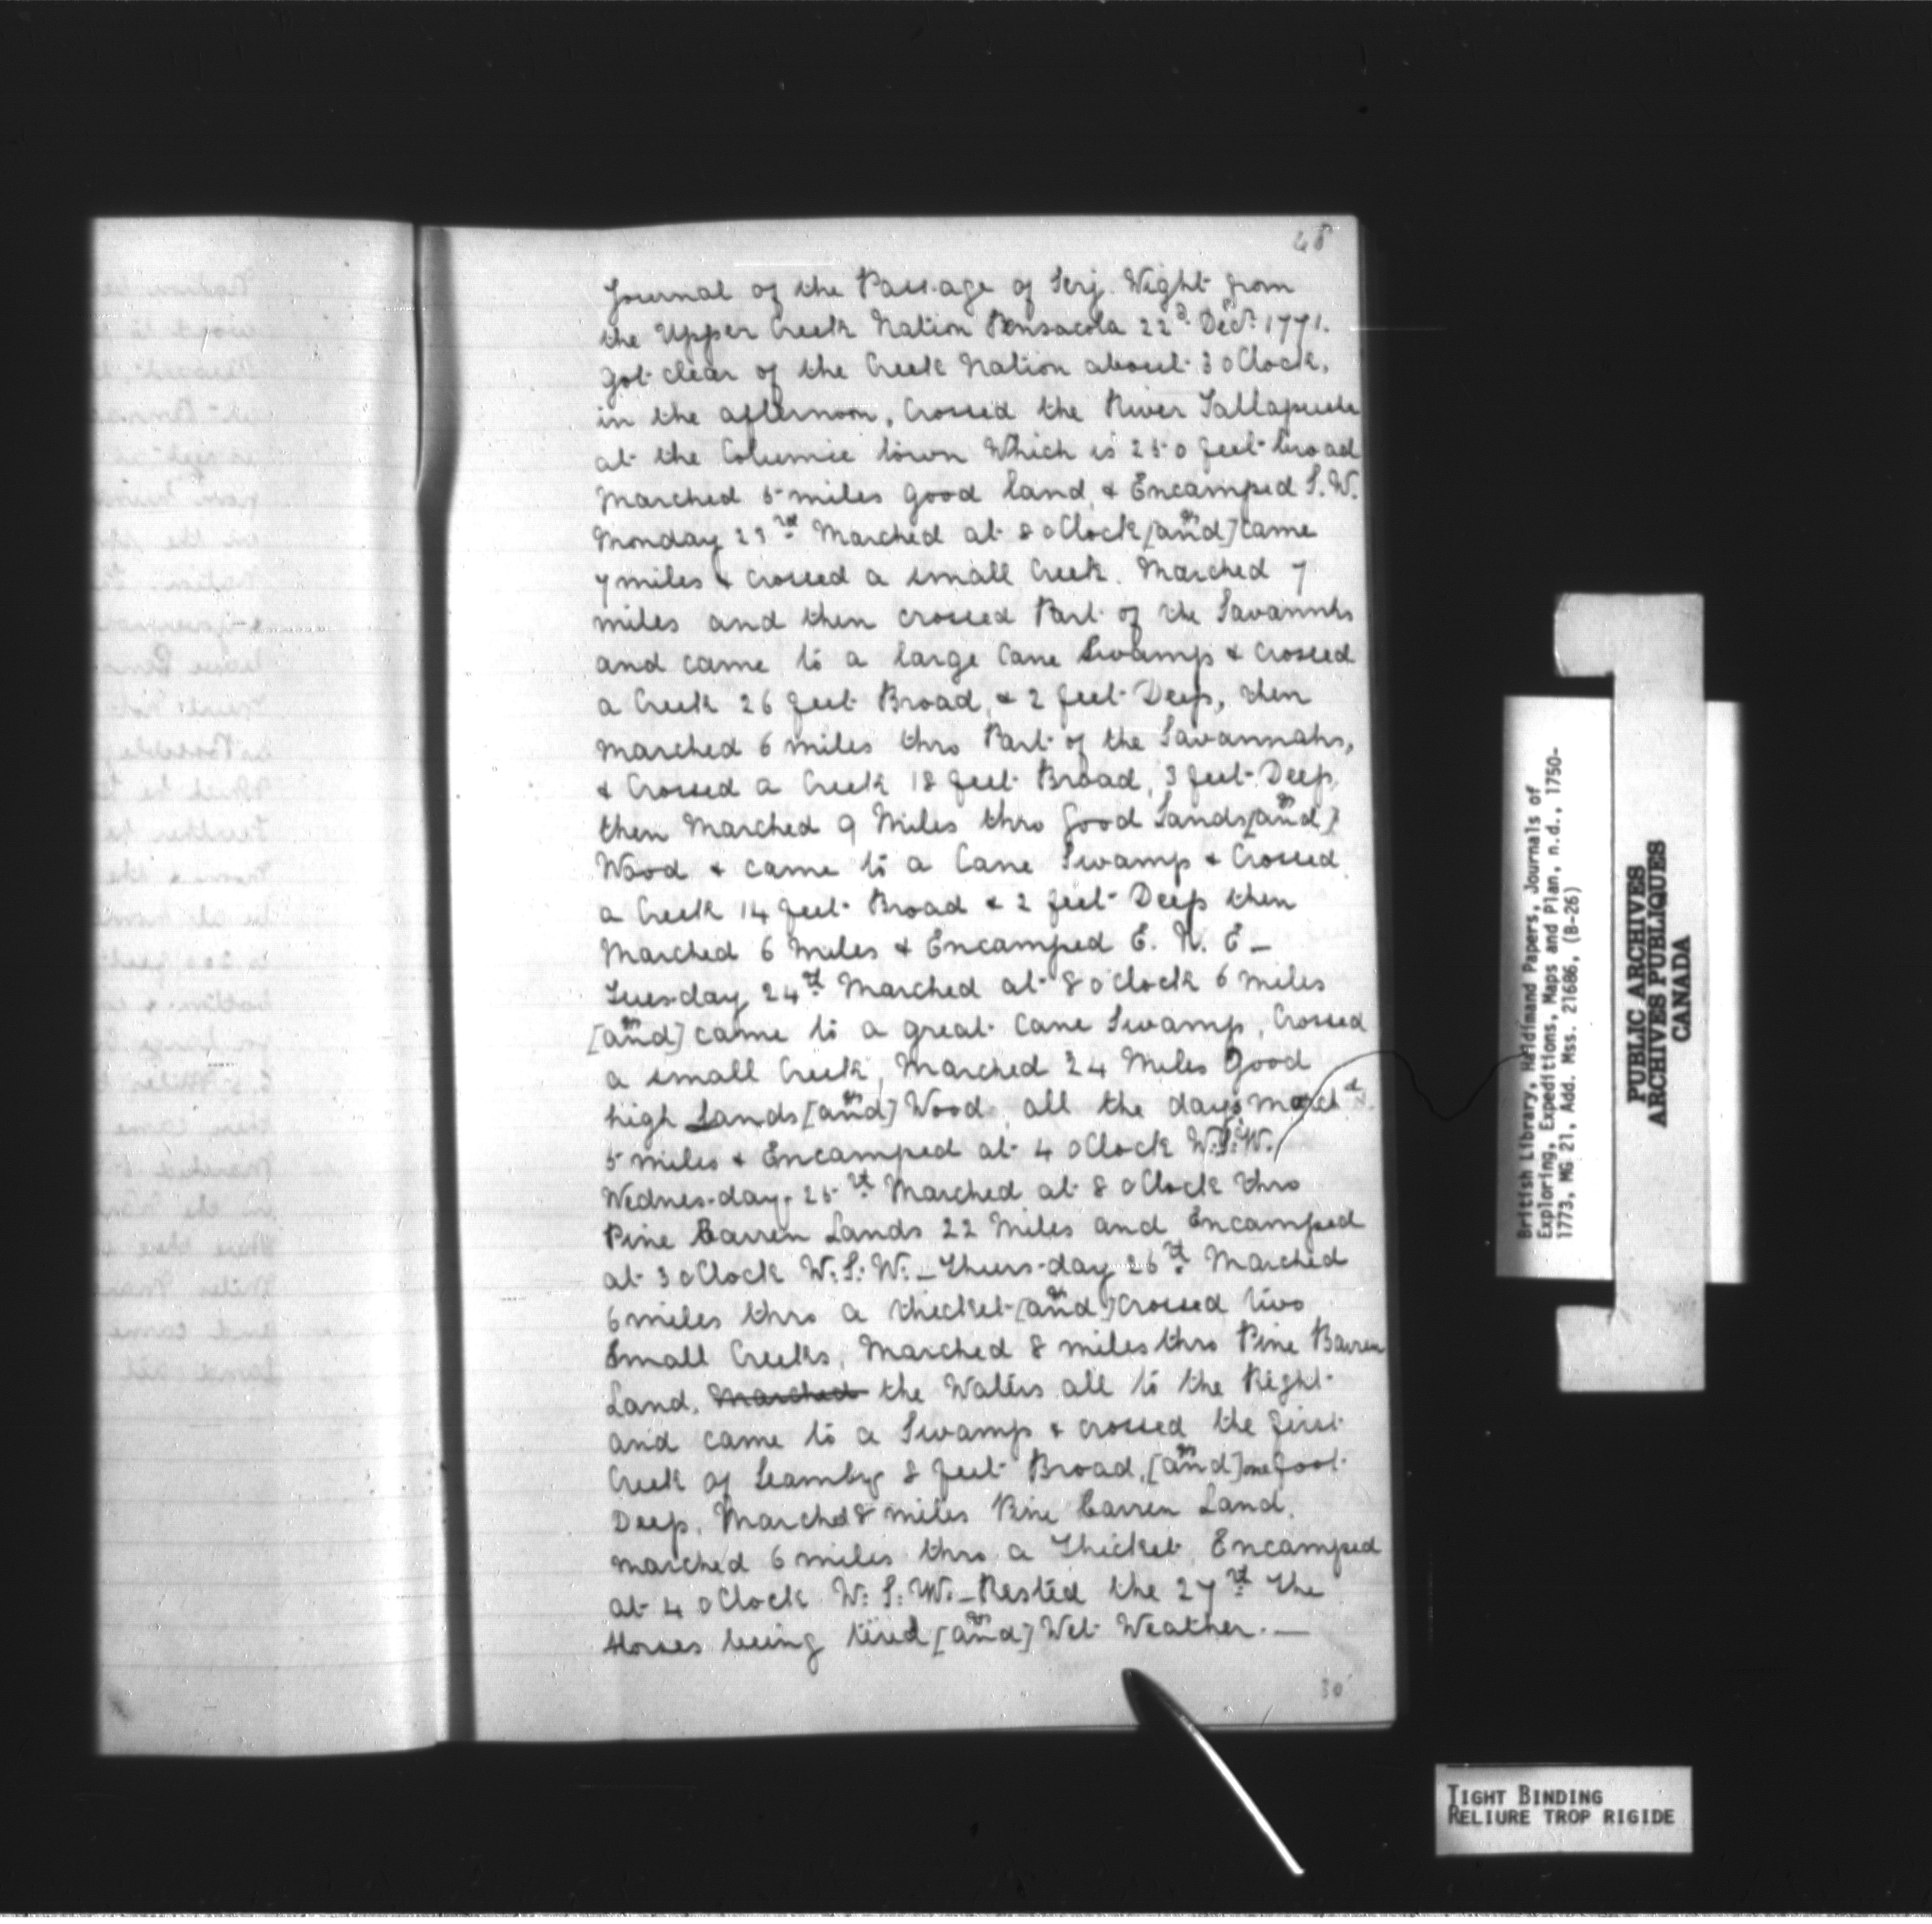 48
Journal of the Passage of Serj. Wight from
the Upper Creek Nation Pensacola 22d Decr 1771.
got clear of the Creek Nation about 3 oClock,
in the afternoon, Crossed the River
at the town Which is 250 feet broad
Marched 5 miles good land, & Encamped S.W.
Monday 23rd Marched at 8 oClock [and] came
7 miles & Crossed a small Creek. Marched 7
miles and then crossed Part of the
and came to a large Cane Swamp & Crossed
a Creek 26 feet Broad, & 2 feet Deep, then
marched 6 miles thro Part of the Savannahs,
& Crossed a Creek 18 feet Broad, 3 feet Deep,
then Marched 9 Miles thro good Lands [and]
Wood & came to a Cane Swamp & Crossed
a Creek 14 feet Broad & 2 feet Deep then
Marched 6 Miles & Encamped E. N. E —
Tuesday 24th Marched at 8 oClock 6 miles
[and] came to a great Cane Swamp, Crossed
a small Creek, Marched 24 Miles Good
high Lands [and] Wood, all the days
5 miles & Encamped at 4 oClock W.S.W.
Wednesday 25th Marched at 8 oClock thro
Pine barren Lands 22 Miles and Encamped
at 3 oClock W.S.W. — Thursday 26th Marched
6 miles thro a thicket [and] Crossed two
Small Creeks, Marched 8 miles thro Pine Barren
Land, Marched the Waters all to the Right
and came to a Swamp & crossed the first
Creek of 8 feet Broad, [and] one foot
Deep. Marched 8 miles Pine barren Land.
marched 6 miles thro a Thicket, Encamped
at 4 oClock W.S.W. — Rested the 27th The
Horses being tired [and] Wet Weather. —
30
British Library, Haldimand Papers, Journals of
Exploring, Expeditions, Maps and Plan, n.d., 1750-
1773, MG 21, Add. Mss. 21686, (B-26)
PUBLIC ARCHIVES
ARCHIVES PUBLIQUES
CANADA
TIGHT BINDING
RELIURE TROP RIGIDE